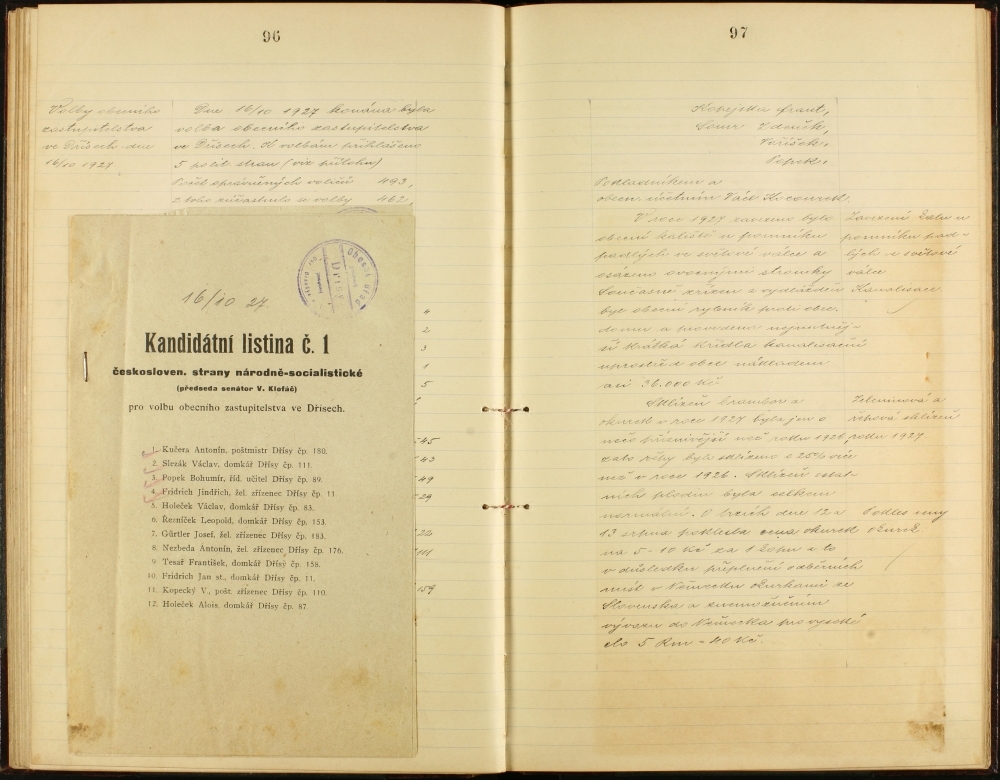 96
Volby obecního
zastupitelstva
ve Dřísech dne
16/10 1927
Dne 16/10 1927 konána byla
volba obecního zastupitelstva
ve Dřísech. K volbám přihlášeno
5 polit. stran (viz příloha)
Počet oprávněných voličů 493,
z toho súčastnilo se volby 462
Obecní úřad
Dřísy
16/10 27.
Kandidátní listina č. 1
českosloven. strany národně-socialistické
(předseda senátor V. Klofáč)
pro volbu obecního zastupitelstva ve Dřísech.
1. Kučera Antonín, poštmistr Dřísy čp. 180.
2. Slezák Václav, domkář Dřísy čp. 111.
3. Popek Bohumír, říd. učitel Dřísy čp. 89.
4. Fridrich Jindřich, žel. zřízenec Dřísy čp. 11
5. Holeček Václav, domkář Dřísy čp. 83.
6. Řezníček Leopold, domkář Dřísy čp. 153.
7. Gürtler Josef, žel. zřízenec Dřísy čp. 183.
8. Nezbeda Antonín, žel. zřízenec Dřísy čp. 176.
9. Tesař František, domkář Dřísy čp. 158.
10. Fridrich Jan st., domkář Dřísy čp. 11.
11. Kopecký V., pošt. zřízenec Dřísy čp. 110.
12. Holeček Alois, domkář Dřísy čp. 87.
4
2
3
1
5
45
43
49
24
22
111
159
97
Frant,
Zdeněk,
Popek.
Podladníkem a
obecn. účetním Václ
V roce 1927 zavezeno bylo
obecní kaliště u pomníku
padlých ve světové válce a
osázeno ovocnými stromky
Současně zřízen a vydlážděn
byl obecní rybník proti obec.
domu a provedena nejnutněj-
ší krátká křídla kanalisační
uprostřed obce nákladem
asi 36.000 Kč
Zavezení kalu u
pomníku pad-
lých v světové
válce
Kanalisace
Sklizeň brambor a
okurek v roce 1927 byla jen o
něco příznivější než roku 1926,
zato řepy bylo sklizeno o 25% více
než v roce 1926. Sklizeň ostat-
ních plodin byla celkem
normální. O trzích dne 12 a
13 srpna poklesla cena okurek
na 5-10 Kč za 1 kopu a to
v důsledku přeplnění odběrních
míst v Německu okurkami ze
Slovenska a znemožněním
vývozu do Německa pro vysoké
clo 5 Rm - 40 Kč.
Zeleninová a
řepová sklizeň
roku 1927
Pokles ceny
okurek